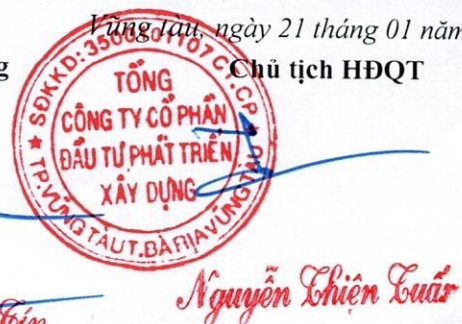 Vũng tàu, ngày 21 tháng 01 năm
Chủ tịch HĐQT
TỔNG
CÔNG TY CỔ PHẦN
ĐẦU TƯ PHÁT TRIỂN
XÂY DỰNG
TP.VŨNG TÀU T.BÀ RỊA VŨNG TÀU
Nguyễn Thiện Tuấn